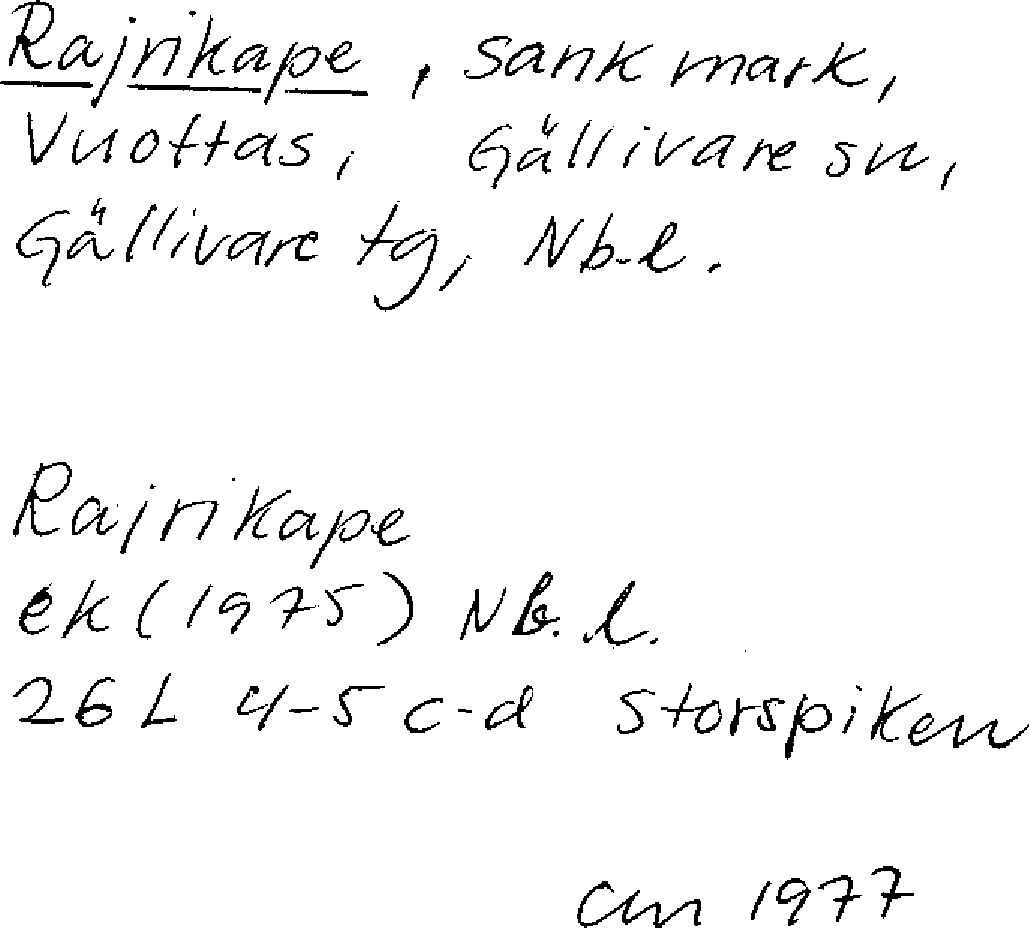 Rajrikape, sank mark,
Vuottas, Gällivare sn,
Gällivare tg, Nb.l.
Rajrikape
ek (1975) Nb.l.
26 L 4-5 c-d Storspiken
1977